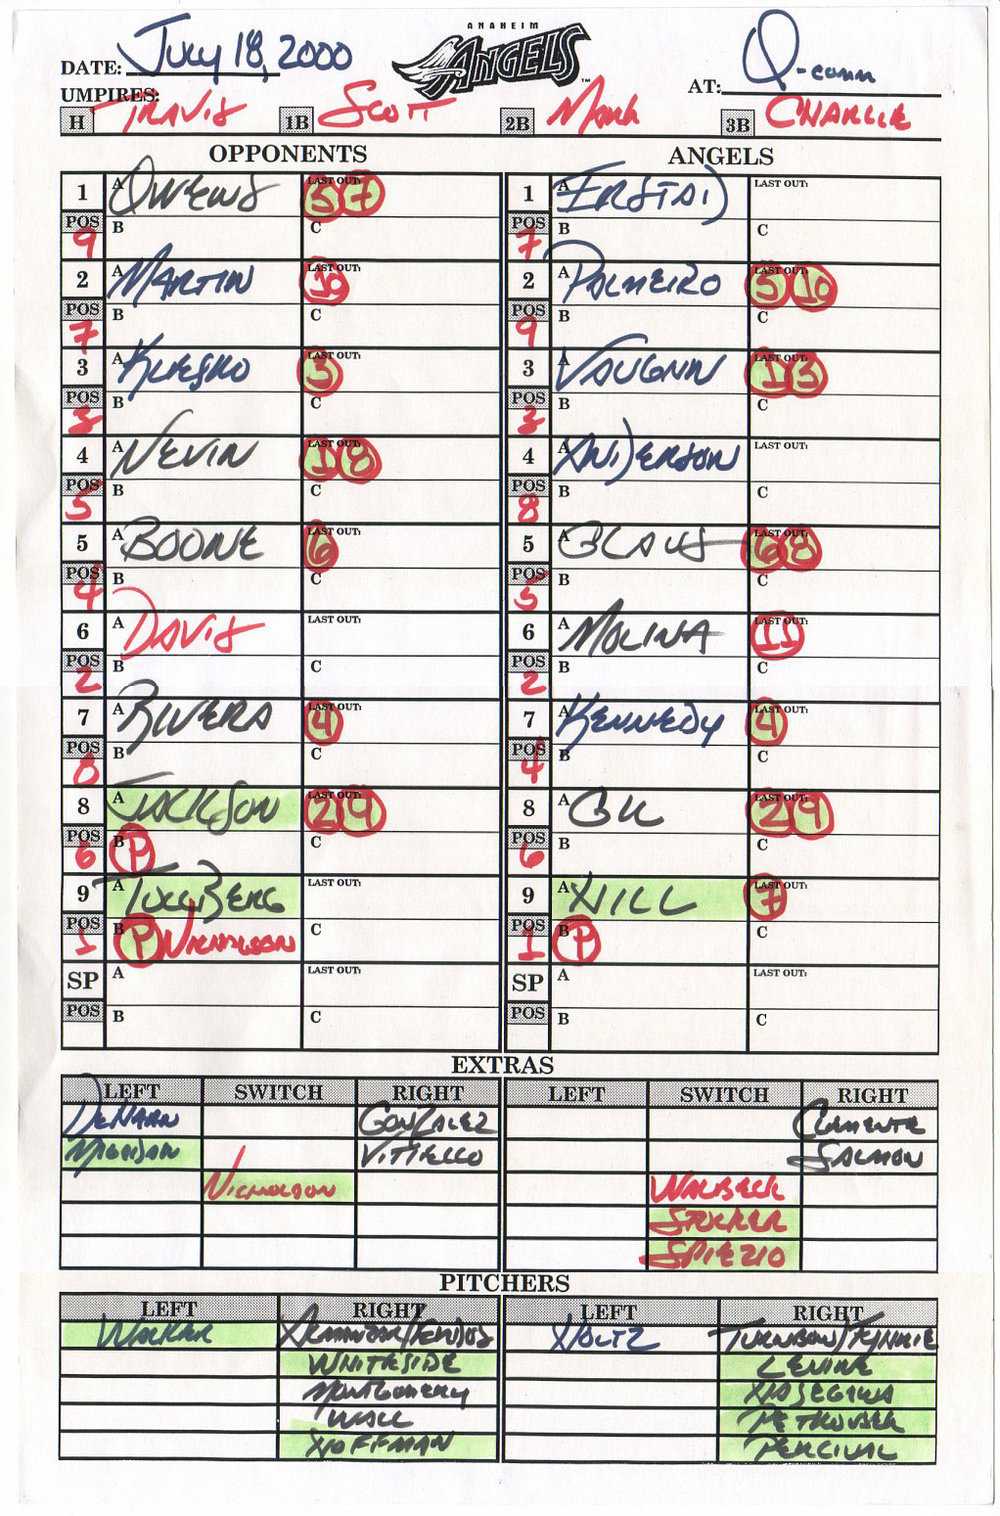 ANAHEIM
ANGELS
DATE: July 18, 2000
AT: Q-comm
UMPIRES:
H TRAVIS 1B SCOTT 2B MARK 3B CHARLIE
OPPONENTS ANGELS
1 A OWENS LAST OUT: 5 7
POS B C
9
2 A MARTIN LAST OUT: 10
POS B C
7
3 A KLESKO LAST OUT: 3
POS B C
3
4 A NEVIN LAST OUT: 1 8
POS B C
5
5 A BOONE LAST OUT: 6
POS B C
4
6 A DAVIS LAST OUT:
POS B C
2
7 A RIVERA LAST OUT: 4
POS B C
8
8 A JACKSON LAST OUT: 2 9
POS B P C
6
9 A TOLLBERG LAST OUT:
POS B P NICHOLSON C
1
SP A LAST OUT:
POS B C
1 A ERSTAD LAST OUT:
POS B C
7
2 A PALMEIRO LAST OUT: 5 10
POS B C
9
3 A VAUGHN LAST OUT: 1 3
POS B C
3
4 A ANDERSON LAST OUT:
POS B C
8
5 A GLAUS LAST OUT: 6 8
POS B C
5
6 A MOLINA LAST OUT: 11
POS B C
2
7 A KENNEDY LAST OUT: 4
POS B C
4
8 A GIL LAST OUT: 2 9
POS B C
6
9 A HILL LAST OUT: 7
POS B P C
1
SP A LAST OUT:
POS B C
EXTRAS
LEFT SWITCH RIGHT LEFT SWITCH RIGHT
DEHAAN GONZALEZ CLEMENTE
MAGADAN VITIELLO SALMON
NICHOLSON WALBECK
STOCKER
SPIEZIO
PITCHERS
LEFT RIGHT LEFT RIGHT
WALKER ALMANZAR/ HOLTZ TURNBOW/
WHITESIDE LEVINE
MONTGOMERY HASEGAWA
WALL PETKOVSEK
HOFFMAN PERCIVAL